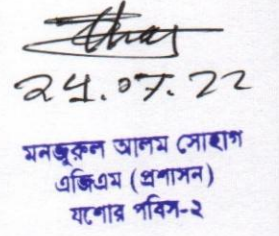 ২৭.০৭.২২
মনজুরুল আলম সোহাগ
এজিএম (প্রশাসন)
যশোর পবিস-২